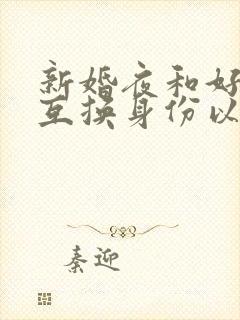 新婚夜和好
互换身份以
秦迎